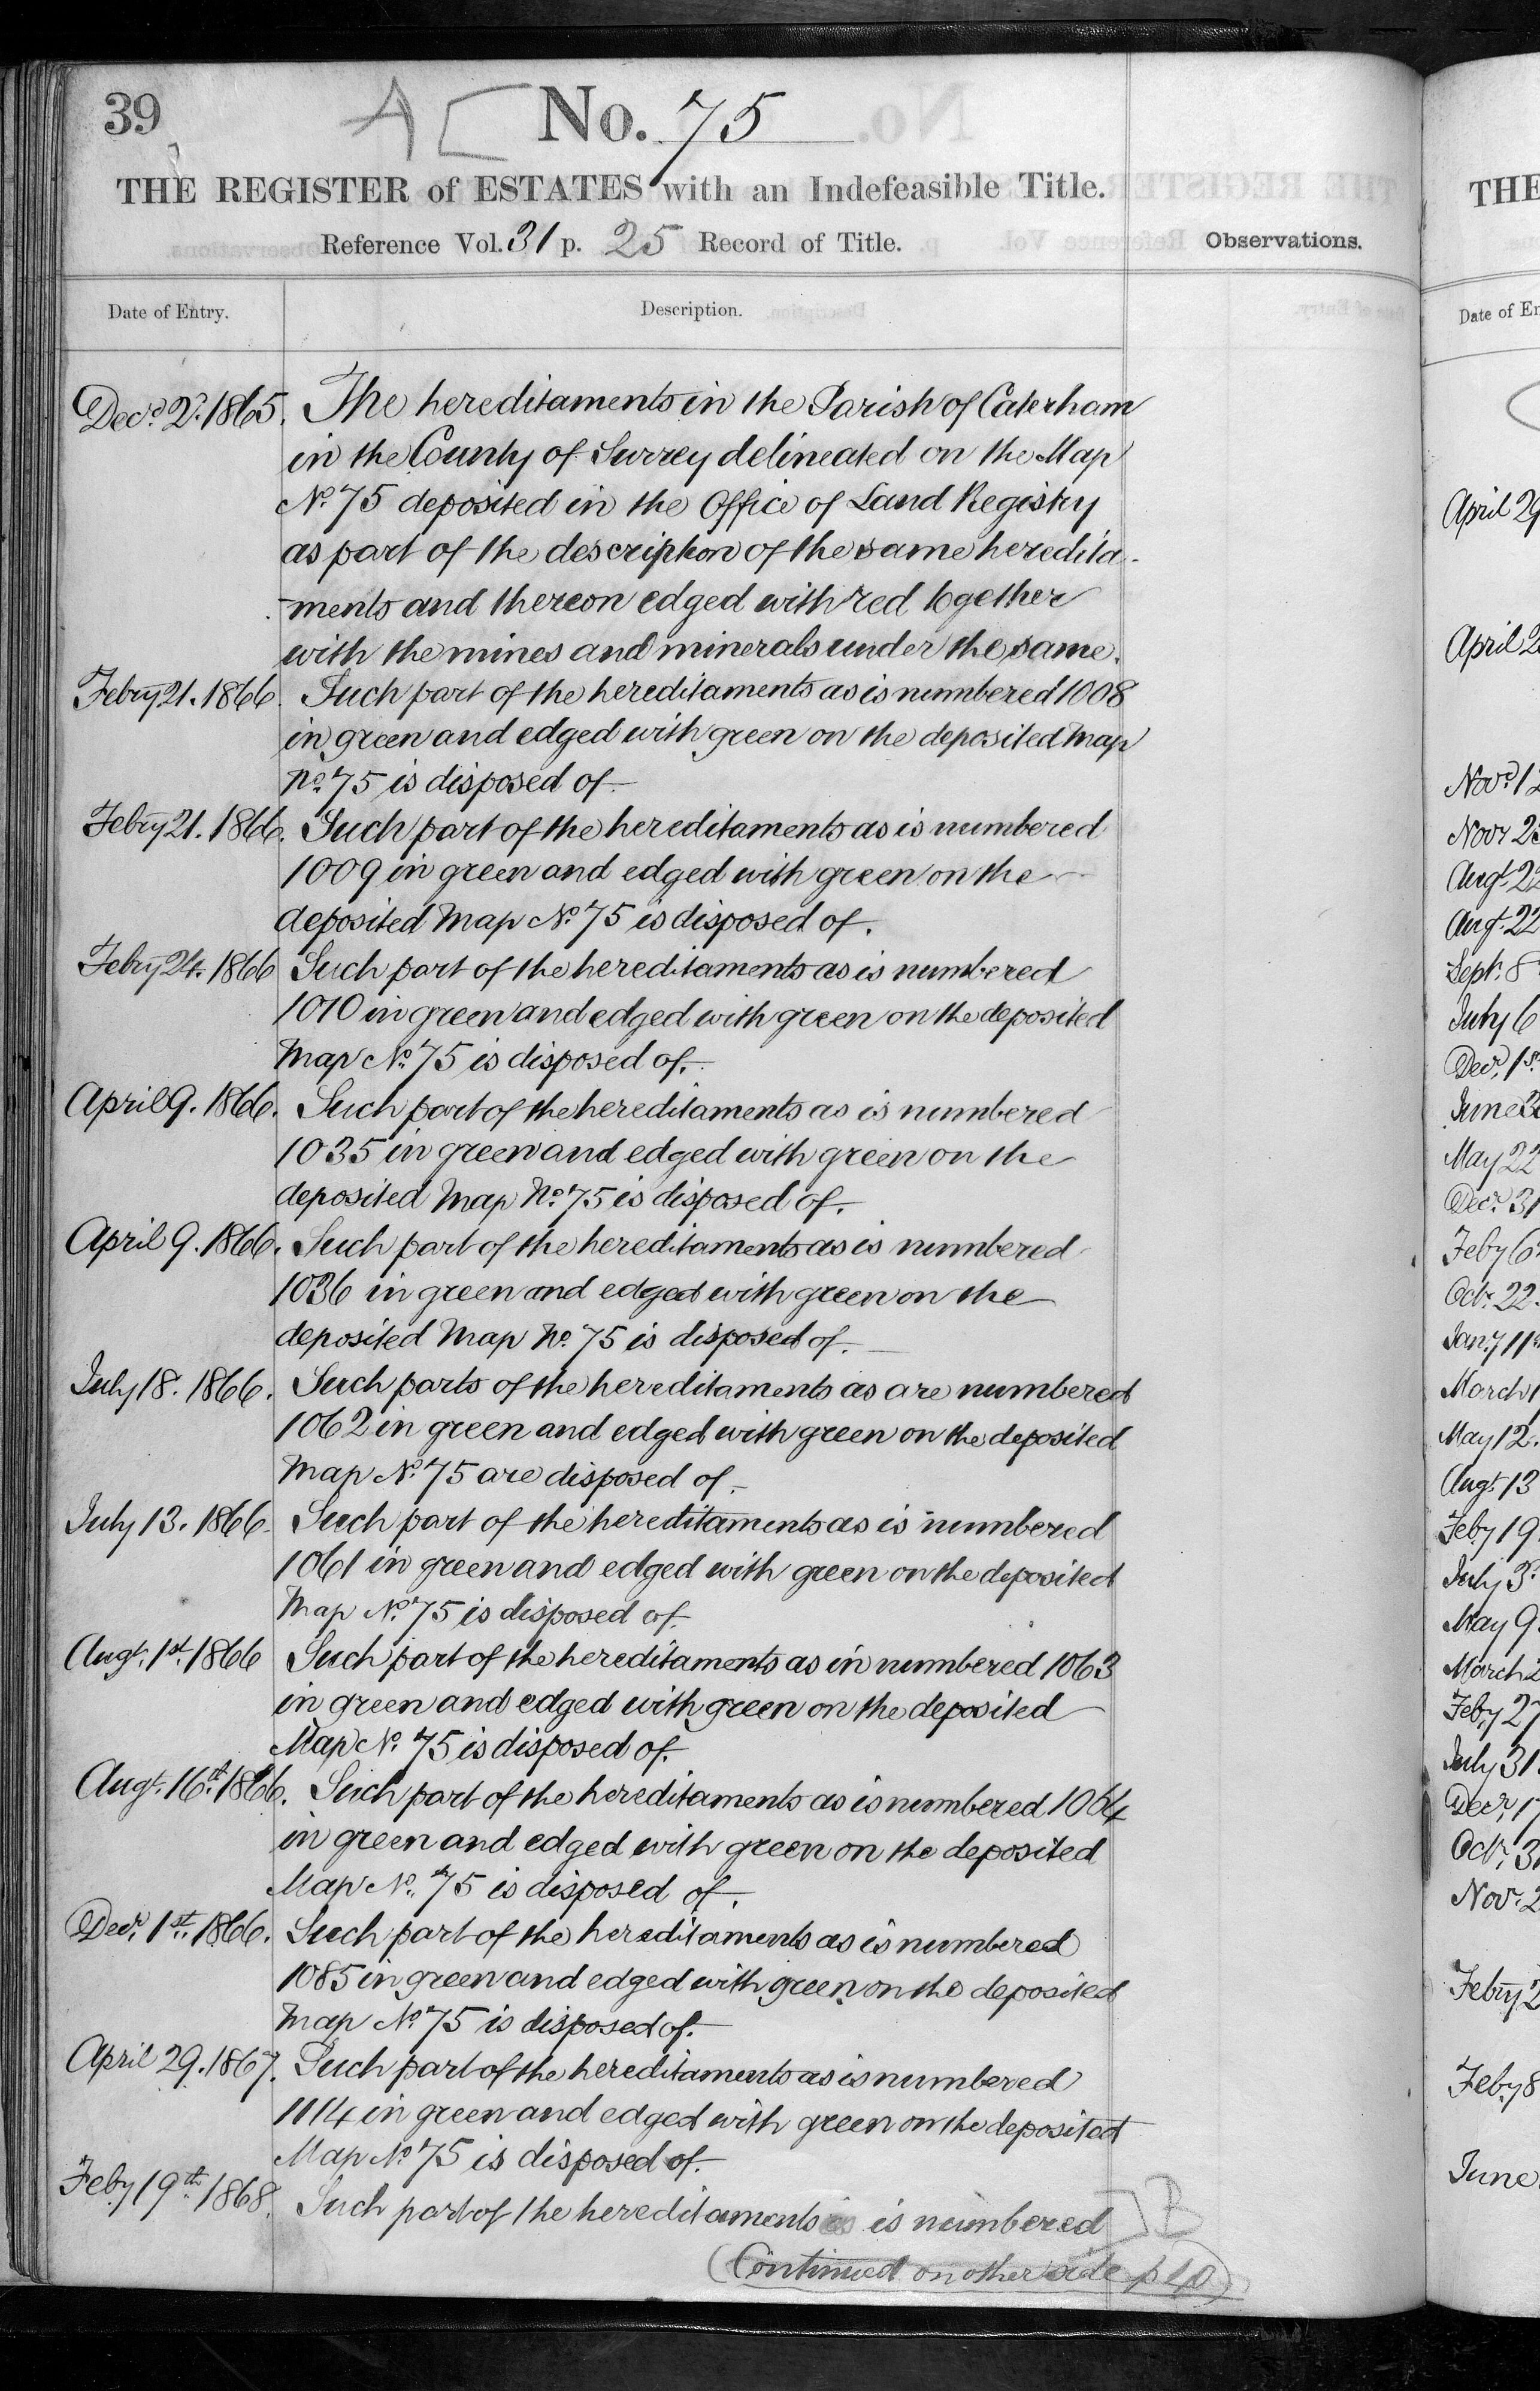 39
A [ No. 75
THE REGISTER of ESTATES with an Indefeasible Title.
Reference Vol. 31 p. 25 Record of Title.
Observations.
Date of Entry.
Description.
Decr. 2. 1865. The hereditaments in the Parish of Caterham
in the County of Surrey delineated on the Map
No. 75 deposited in the Office of Land Registry
as part of the description of the same heredita-
-ments and thereon edged with red together
with the mines and minerals under the same.
Febry 21. 1866. Such part of the hereditaments as is numbered 1008
in green and edged with green on the deposited Map
No. 75 is disposed of
Febry 21. 1866. Such part of the hereditaments as is numbered
1009 in green and edged with green on the
deposited Map No. 75 is disposed of.
Febry 24. 1866 Such part of the hereditaments as is numbered
1010 in green and edged with green on the deposited
Map No. 75 is disposed of.
April 9. 1866. Such part of the hereditaments as is numbered
1035 in green and edged with green on the
deposited Map No. 75 is disposed of.
April 9. 1866. Such part of the hereditaments as is numbered
1036 in green and edged with green on the
deposited Map No. 75 is disposed of.
July 18. 1866. Such parts of the hereditaments as are numbered
1062 in green and edged with green on the deposited
Map No. 75 are disposed of.
July 13. 1866. Such part of the hereditaments as is numbered
1061 in green and edged with green on the deposited
Map No. 75 is disposed of.
Augt. 1st. 1866 Such part of the hereditaments as in numbered 1063
in green and edged with green on the deposited
Map No. 75 is disposed of.
Augt. 16th. 1866. Such part of the hereditaments as is numbered 1064
in green and edged with green on the deposited
Map No. 75 is disposed of.
Decr. 1st. 1866. Such part of the hereditaments as is numbered
1085 in green and edged with green on the deposited
Map No. 75 is disposed of.
April 29. 1867. Such part of the hereditaments as is numbered
1114 in green and edged with green on the deposited
Map No. 75 is disposed of.
Feby 19th. 1868. Such part of the hereditaments as is numbered ] B
(Continued on other side p 40)
THE
Date of En
April 29
April 2
Novr 12
Novr 23
Augt. 22
Augt. 22
Sept. 8
July 6
Decr. 1st.
June
May 22
Decr. 31
Feby 6
Octr. 22.
Jany 11
March 1
May 12.
Augt. 13
Feby 19
July 3
May 9
March 2
Feby 27
July 31
Decr. 17
Octr. 3
Novr. 2
Febry 2
Feby 8
June